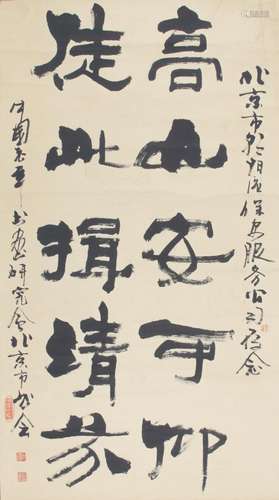 北京市朝阳保安服务公司存念
高山安可仰
徒此揖清芬
中国老年书画研究会北京市分会